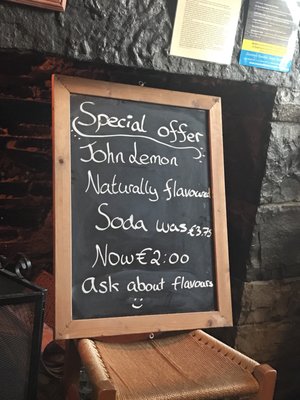 Special offer
John Lemon
Naturally flavoured
Soda was €3.75
Now €2:00
Ask about flavours